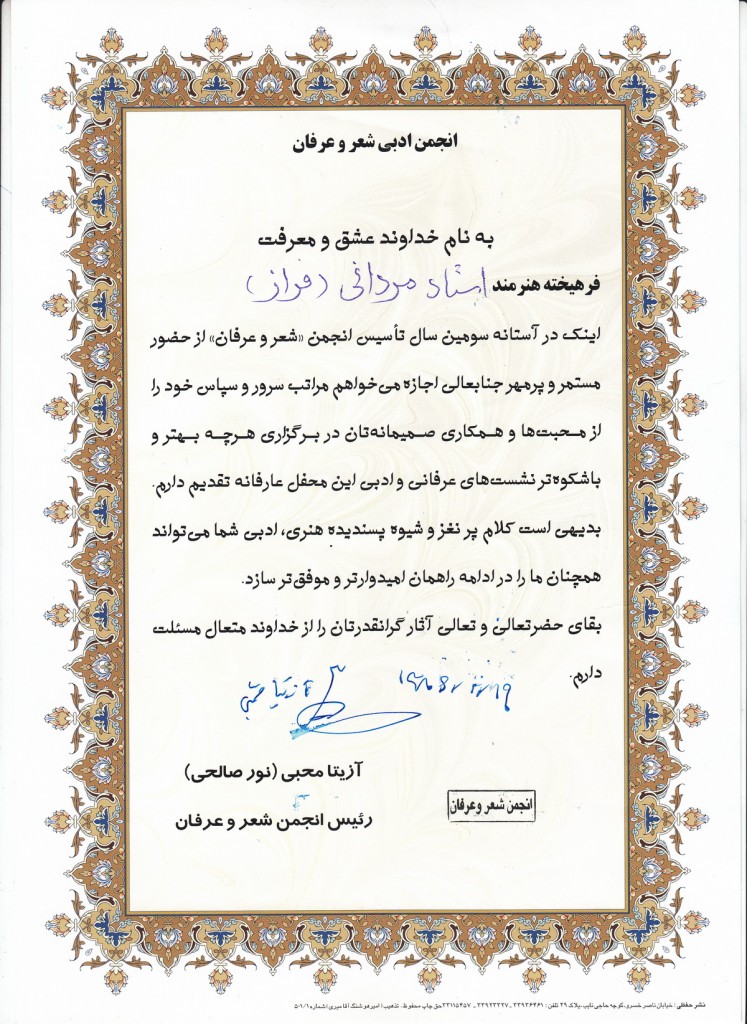 انجمن ادبی شعر و عرفان
به نام خداوند عشق و معرفت
فرهیخته هنرمند استاد مردانی (فراز)
اینک در آستانه سومین سال تأسیس انجمن «شعر و عرفان» از حضور
مستمر و پرمهر جنابعالی اجازه می‌خواهم مراتب سرور و سپاس خود را
از محبت‌ها و همکاری صمیمانه‌تان در برگزاری هرچه بهتر و
باشکوه‌تر نشست‌های عرفانی و ادبی این محفل عارفانه تقدیم دارم.
بدیهی است کلام پر نغز و شیوه پسندیده هنری، ادبی شما می‌تواند
همچنان ما را در ادامه راهمان امیدوارتر و موفق‌تر سازد.
بقای حضرتعالی و تعالی آثار گرانقدرتان را از خداوند متعال مسئلت
دارم.
آزیتا محبی
آزیتا محبی (نور صالحی)
رئیس انجمن شعر و عرفان
انجمن شعر و عرفان
نشر حفظی: خیابان ناصر خسرو، کوچه حاجی نایب، پلاک ۲۹ تلفن: ۳۳۹۳۶۴۶۱ - ۳۳۹۲۳۳۲۷ - ۳۳۱۱۵۴۵۷ حق چاپ محفوظ. تذهیب: امیرهوشنگ آقامیری / شماره ۵۰۱/۱